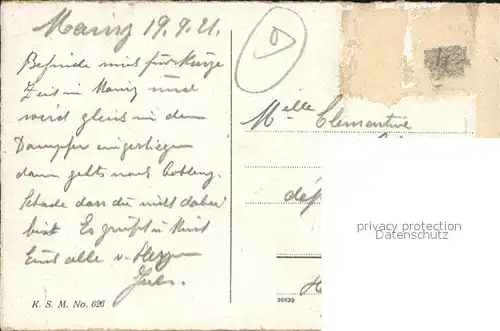 Mainz 19.9.21.
Befinde mich für kurze
Zeit in Mainz und
wird gleich in den
Dampfer eingestiegen
dann gehts nach Coblenz.
Schade dass du nicht dabei
bist. Es grüßt u. küsst
Euch alle v. Herzen
K. S. M. No. 626
Melle Clementine
dép
privacy protection
Datenschutz
20839